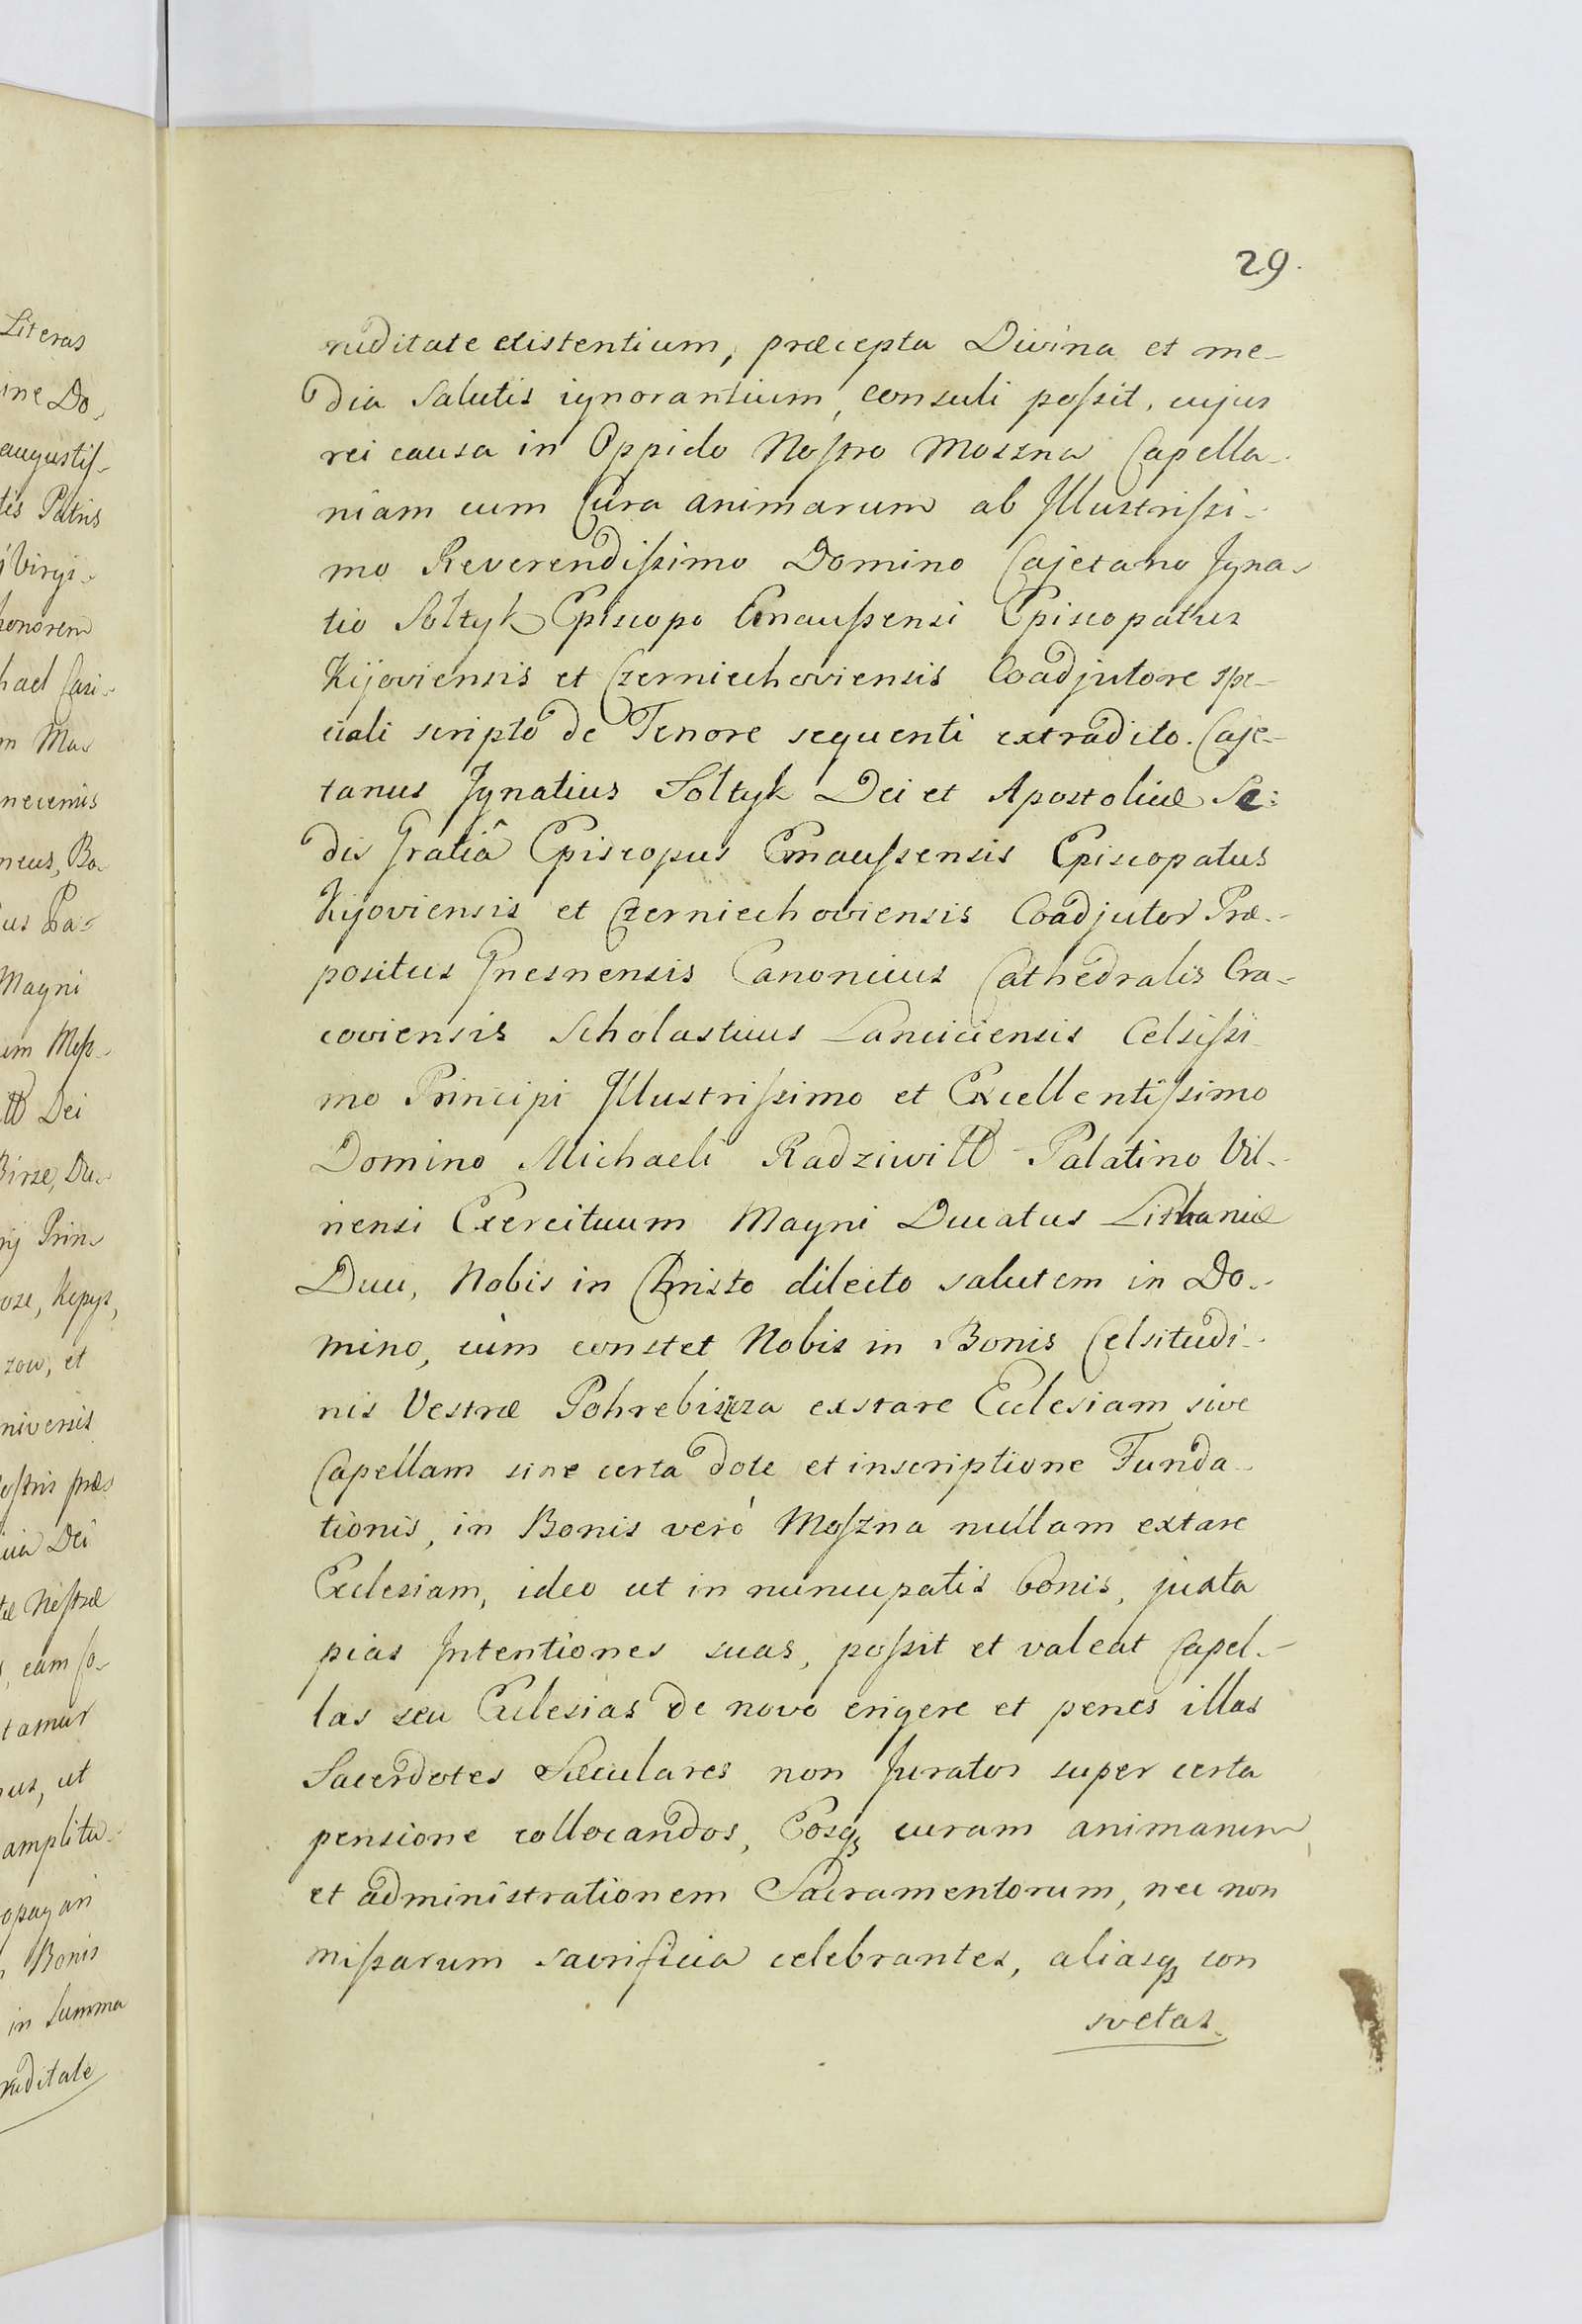 Literas
ine Do-
augustiſ-
tis Patris
Virgi-
honorem
hael Casi-
m Ma-
necenus
neus, Ba-
us Pa-
Magni
um Meſs-
tt Dei
Birze, Du-
rÿ Prin-
oze, Kopys,
zow, et
niversis
noſtris præ-
tia Dei
tæ Noſtræ
, eam so-
tamur
us, ut
amplitu-
opagari
Bonis
in Summa
ruditate
29.
ruditate existentium, præcepta Divina et me-
dia Salutis ignorantium, consuli poſsit, cujus
rei causa in Oppido Noſtro Moszna Capella-
niam cum Cura animarum ab Illustriſsi-
mo Reverendiſsimo Domino Cajetano Igna-
tio Sołtyk Episcopo Emauſsensi Episcopatus
Kijoviensis et Czerniechoviensis Coadjutore spe-
ciali scripto de Tenore sequenti extradito. Caje-
tanus Ignatius Sołtyk Dei et Apostolicæ Se:
dis Gratiâ Episcopus Emauſsensis Episcopatus
Kijoviensis et Czerniechoviensis Coadjutor Præ-
positus Gnesnensis Canonicus Cathedralis Cra-
coviensis Scholasticus Lanciciensis Celsiſsi
mo Principi Illustriſsimo et Excellentiſsimo
Domino Michaeli Radziwiłł Palatino Vil-
nensi Exercituum Magni Ducatus Lithaniæ
Duci, Nobis in Christo dilecto salutem in Do-
mino, cùm constet Nobis in Bonis Celsitudi-
nis Vestræ Pohrebiszcza exstare Ecclesiam sive
Capellam sine certa dote et inscriptione Funda-
tionis, in Bonis verò Moſzna nullam extare
Ecclesiam, ideo ut in nuncupatis bonis, juxta
pias Intentiones suas, poſsit et valeat Capel-
las seu Ecclesias de novo erigere et penes illas
Sacerdotes Sæculares non Juratos super certa
pensione collocandos, Eosq3 curam animarum
et administrationem Sacramentorum, nec non
miſsarum sacrificia celebrantes, aliasq3 con
svetas